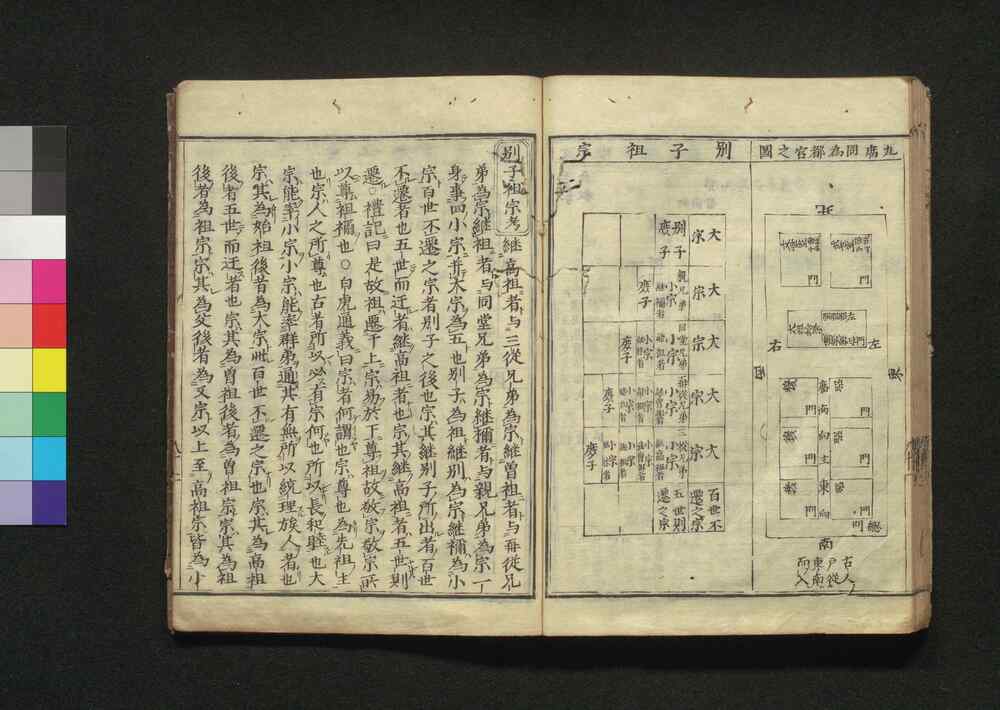 九廟同為都宮之圖
北
門
門
左
右
東
門
門
門
門
門
南
古人
戶從
東南
而入
別子祖宗
大宗
別子
庶子
大宗
親兄弟
小宗
繼禰者
庶子
大宗
同堂兄弟
小宗
繼祖者
小宗
繼禰者
庶子
大宗
再從兄弟
小宗
小宗
小宗
庶子
大宗
三從兄弟
小宗
小宗
小宗
小宗
庶子
百世不遷之宗
五世則遷之宗
別子祖宗考 繼高祖者与三從兄弟為宗継曽祖者与再從兄
弟為宗継祖者与同堂兄弟為宗継禰者与親兄弟為宗一
身事四小宗并大宗為五也别子為祖継别為宗継禰為小
宗百世不遷之宗者别子之後也宗其継别子所出者百世
不遷者也五世而迁者継高祖者也宗其継高祖者五世則
遷○禮記曰是故祖遷于上宗易於下尊祖故敬宗敬宗所
以尊祖禰也○白虎通義曰宗者何謂也宗尊也為先祖主
也宗人之所尊也古者所以必有宗何也所以長和睦也大
宗能率小宗小宗能率群弟通其有無所以統理族人者也
宗其為始祖後者為大宗此百世不遷之宗也宗其為高祖
後者五世而迁者也宗其為曽祖後者為曽祖宗宗其為祖
後者為祖宗宗其為父後者為父宗以上至高祖宗皆為小